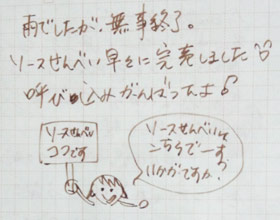 雨でしたが、無事終了。
ソースせんべい早々に完売しました
呼び込みがんばったよ♪
ソースせんべい
ココです
ソースせんべい
こちらでーす
いかがですか?